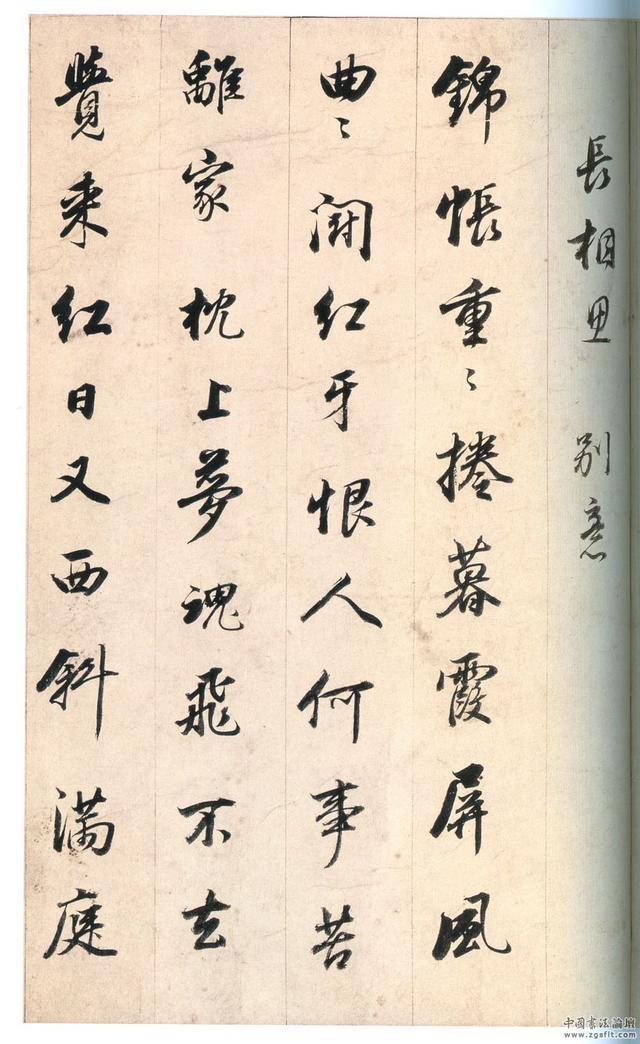 長相思 別意
錦帳重〻捲暮霞屏風
曲〻鬪紅牙恨人何事苦
離家枕上夢魂飛不去
覺来紅日又西斜滿庭
中國書法論壇
www.zgsflt.com